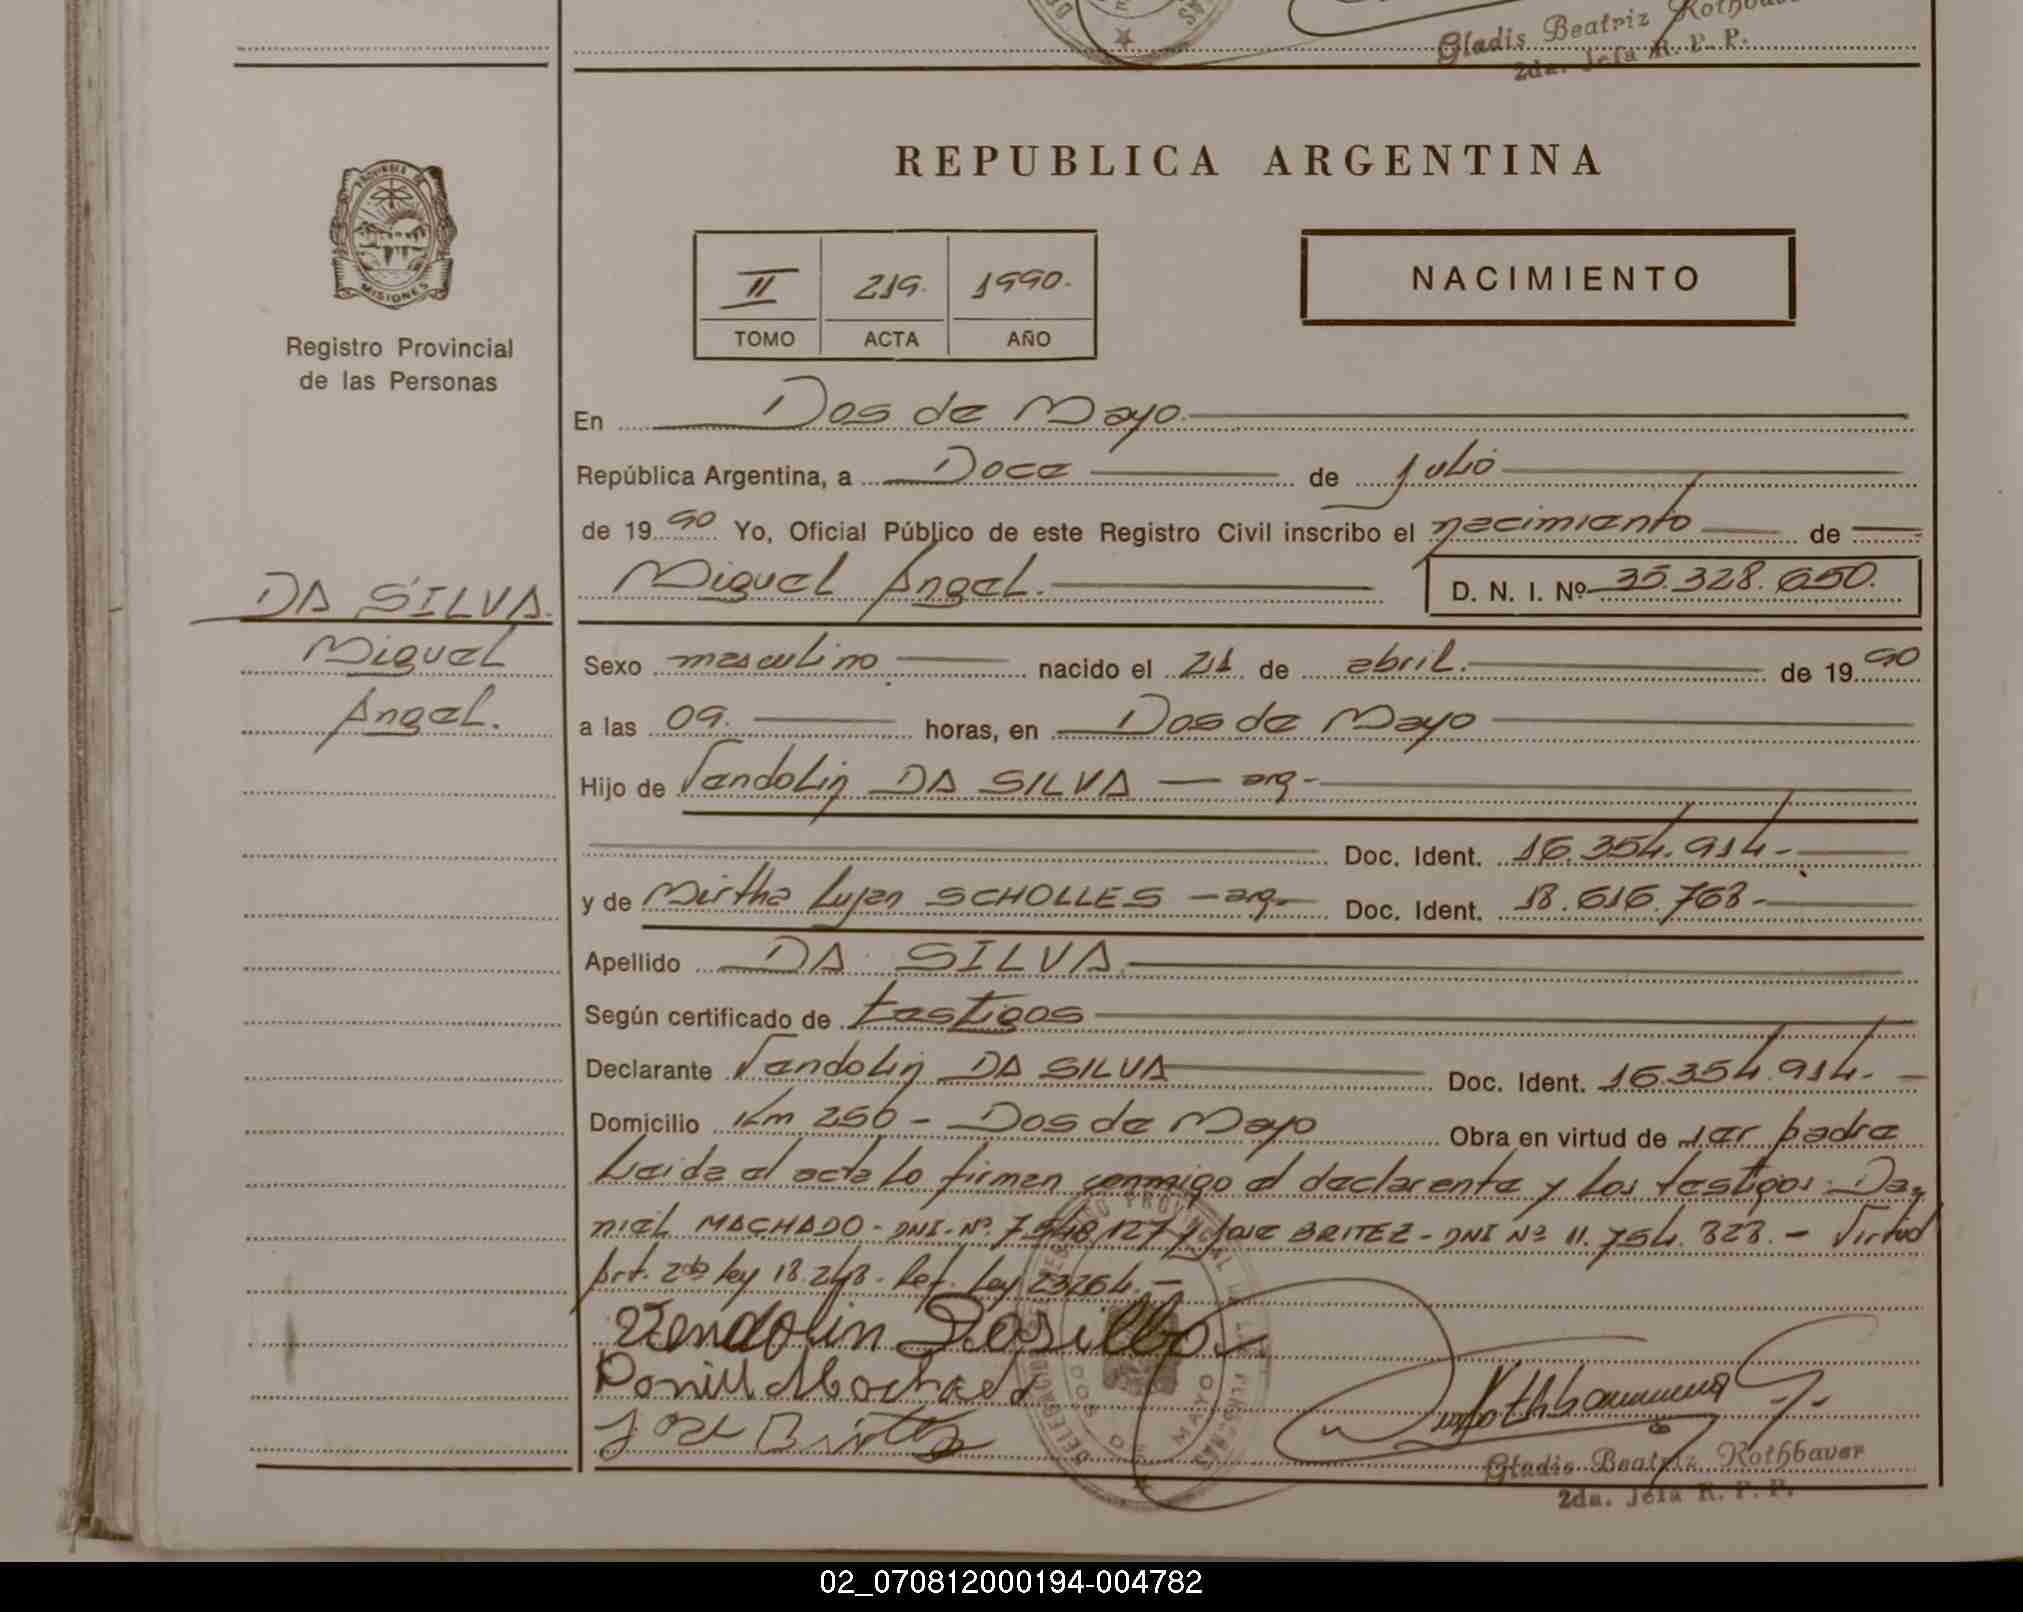 Gladis Beatriz Rothbauer
2da. Jefa R. P. P.
REPUBLICA ARGENTINA
PROVINCIA DE
MISIONES
Registro Provincial
de las Personas
II 219. 1990.
TOMO ACTA AÑO
NACIMIENTO
En Dos de Mayo.
República Argentina, a Doce de julio
de 1990 Yo, Oficial Público de este Registro Civil inscribo el nacimiento de
Miguel Angel. D. N. I. Nº 35.328.650.
DA SILVA.
Miguel
Angel.
Sexo masculino nacido el 21 de abril. de 1990
a las 09. horas, en Dos de Mayo
Hijo de Vendolin DA SILVA - arg-
Doc. Ident. 16.354.914-
y de Mirtha Lujan SCHOLLES - arg- Doc. Ident. 18.616.768-
Apellido DA SILVA.
Según certificado de testigos
Declarante Vendolin DA SILVA Doc. Ident. 16.354.914.-
Domicilio Km 256 - Dos de Mayo Obra en virtud de ser padre
Leida el acta lo firman conmigo el declarante y los testigos: Da-
niel MACHADO - DNI-Nº. 7.548.127 y Jose BRITEZ - DNI Nº 11.754.828. - Virtud
Art. 2do ley 18.248. Ref. Ley 23264.-
Vendolin Dasilba
Daniel Machado
Jose Britez
DOS DE MAYO
Gladis Beatriz Rothbauer
2da. Jefa R. P. P.
02_070812000194-004782